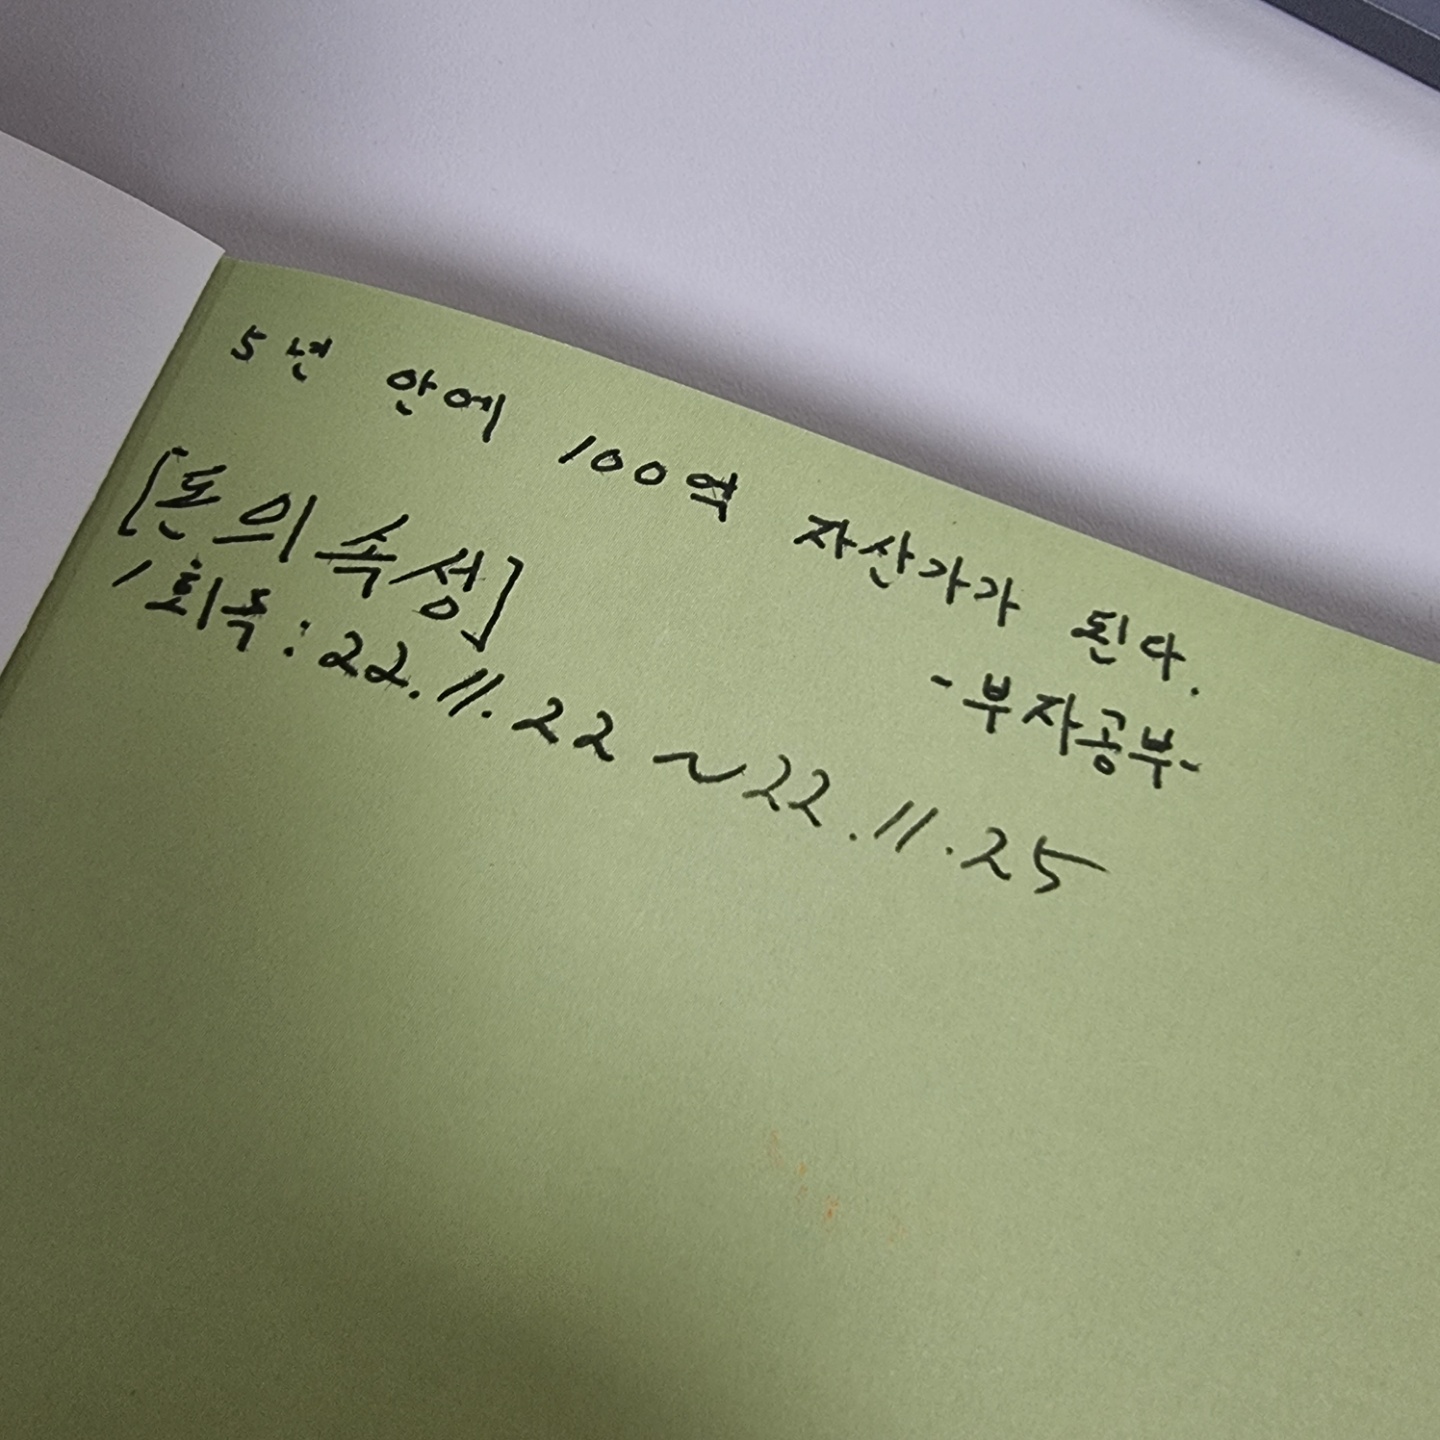 5년 안에 100억 자산가가 된다.
-부자공부-
[돈의 속성]
1회독 : 22.11.22 ~ 22.11.25